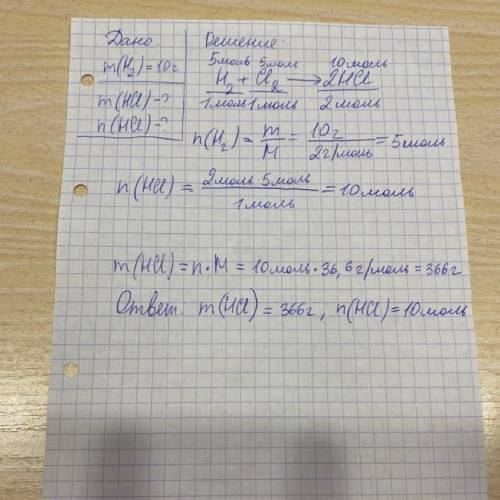 Дано: Решение:
m(H₂)=10г
m(HCl)-?
n(HCl)-?
5моль 5моль 10моль
H₂ + Cl₂ → 2HCl
1моль 1моль 2моль
n(H₂) = m/M = 10г/2г/моль = 5моль
n(HCl) = 2моль·5моль/1моль = 10моль
m(HCl)=n·M = 10моль·36,6г/моль = 366г
Ответ: m(HCl) = 366г; n(HCl)=10моль